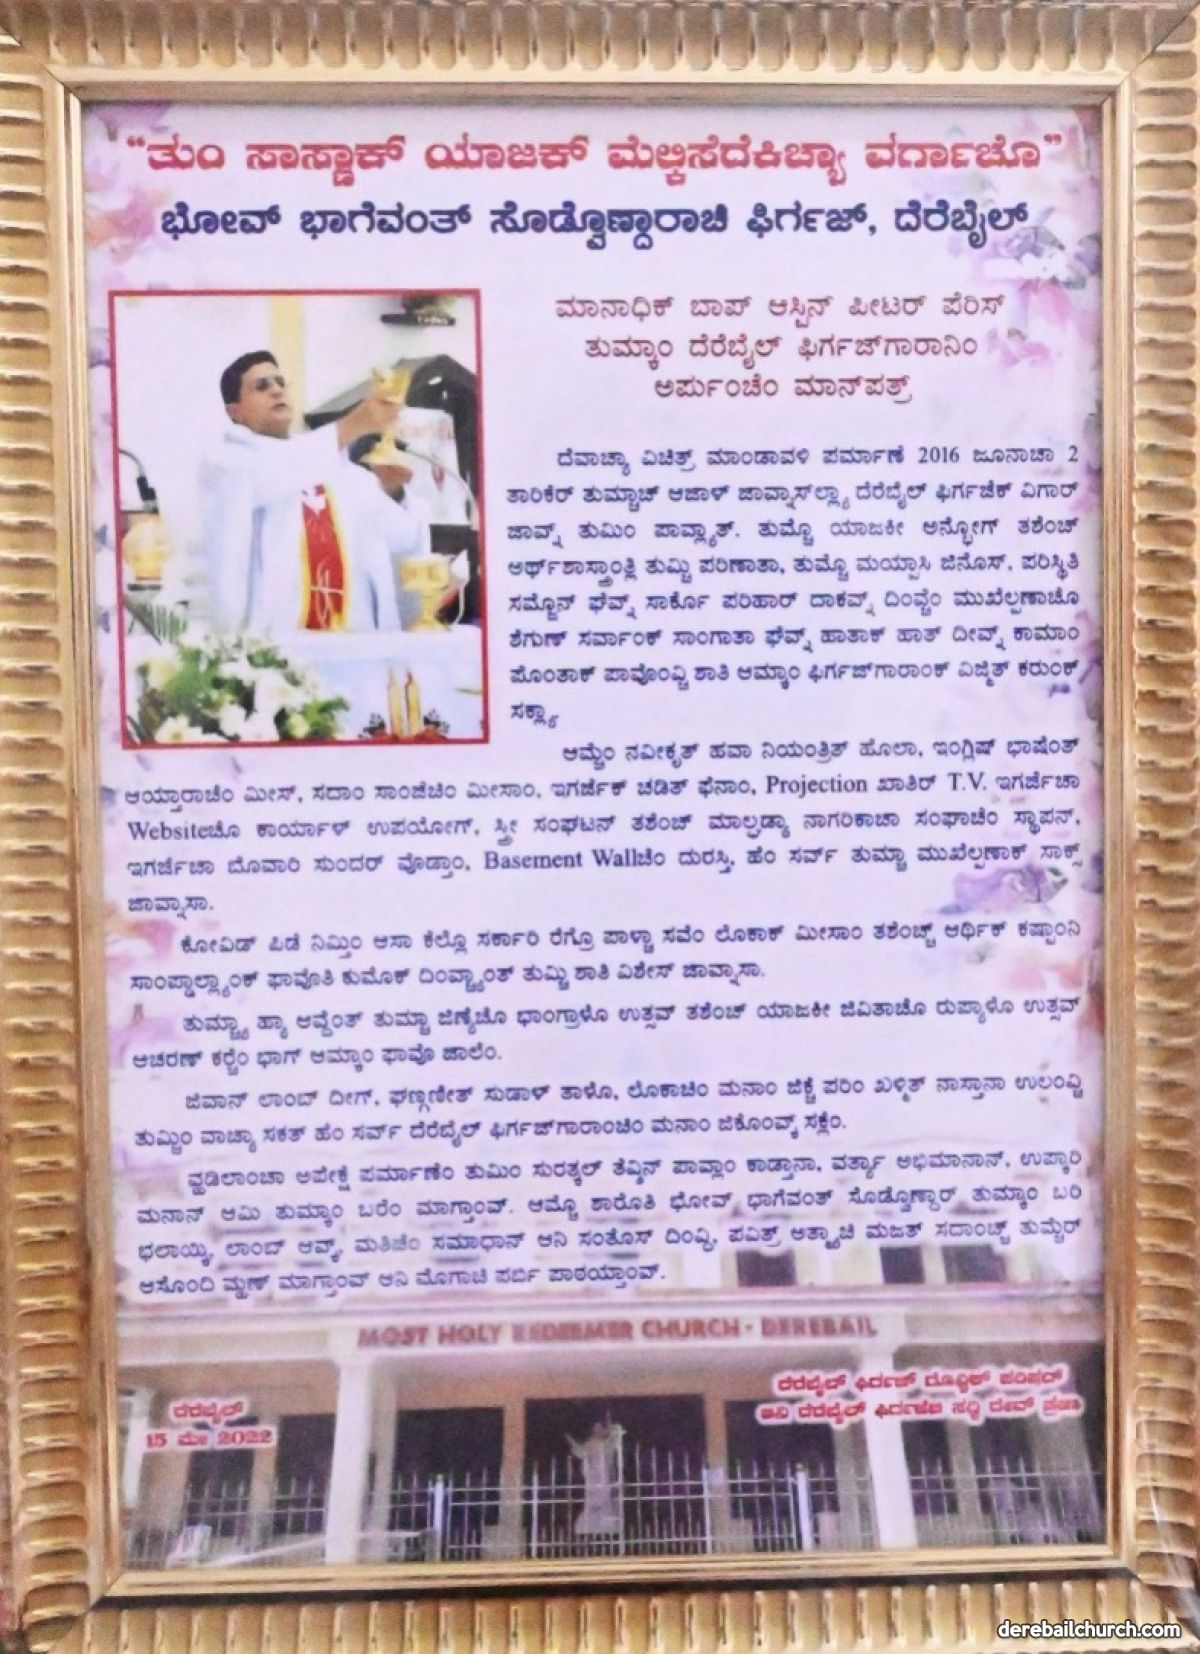 “ತುಂ ಸಾಸ್ಣಾಕ್ ಯಾಜಕ್ ಮೆಲ್ಕಿಸೆದೆಕಿಚ್ಯಾ ವರ್ಗಾಚೊ”
ಭೋವ್ ಭಾಗೆವಂತ್ ಸೊಡ್ವೊಣ್ದಾರಾಚಿ ಫಿರ್ಗಜ್, ದೆರೆಬೈಲ್
ಮಾನಾಧಿಕ್ ಬಾಪ್ ಆಸ್ಟಿನ್ ಪೀಟರ್ ಪೆರಿಸ್
ತುಮ್ಕಾಂ ದೆರೆಬೈಲ್ ಫಿರ್ಗಜ್‌ಗಾರಾನಿಂ
ಅರ್ಪುಂಚೆಂ ಮಾನ್‌ಪತ್ರ್
ದೆವಾಚ್ಯಾ ವಿಚಿತ್ರ್ ಮಾಂಡಾವಳಿ ಪರ್ಮಾಣೆ 2016 ಜೂನಾಚಾ 2
ತಾರಿಕೆರ್ ತುಮ್ಚಾಚ್ ಆಜಾಳ್ ಜಾವ್ನಾಸ್‌ಲ್ಲ್ಯಾ ದೆರೆಬೈಲ್ ಫಿರ್ಗಜೆಕ್ ವಿಗಾರ್
ಜಾವ್ನ್ ತುಮಿಂ ಪಾವ್ಲ್ಯಾತ್. ತುಮ್ಚೊ ಯಾಜಕೀ ಅನ್ಭೋಗ್ ತಶೆಂಚ್
ಅರ್ಥ್‌ಶಾಸ್ತ್ರಾಂತ್ಲಿ ತುಮ್ಚಿ ಪರಿಣಾತಾ, ತುಮ್ಚೊ ಮಯ್ಪಾಸಿ ಜಿನೊಸ್, ಪರಿಸ್ಥಿತಿ
ಸಮ್ಜೊನ್ ಘೆವ್ನ್ ಸಾರ್ಕೊ ಪರಿಹಾರ್ ದಾಕವ್ನ್ ದಿಂವ್ಚೆಂ ಮುಖೆಲ್ಪಣಾಚೊ
ಶೆಗುಣ್ ಸರ್ವಾಂಕ್ ಸಾಂಗಾತಾ ಘೆವ್ನ್ ಹಾತಾಕ್ ಹಾತ್ ದೀವ್ನ್ ಕಾಮಾಂ
ಪೊಂತಾಕ್ ಪಾವೊಂವ್ಚಿ ಶಾತಿ ಆಮ್ಕಾಂ ಫಿರ್ಗಜ್‌ಗಾರಾಂಕ್ ವಿಜ್ಮಿತ್ ಕರುಂಕ್
ಸಕ್ಲ್ಯಾ
ಆಮ್ಚೆಂ ನವೀಕೃತ್ ಹವಾ ನಿಯಂತ್ರಿತ್ ಹೊಲಾ, ಇಂಗ್ಲಿಷ್ ಭಾಷೆಂತ್
ಆಯ್ತಾರಾಚೆಂ ಮೀಸ್, ಸದಾಂ ಸಾಂಜೆಚಿಂ ಮೀಸಾಂ, ಇಗರ್ಜೆಕ್ ಚಡಿತ್ ಫೆನಾಂ, Projection ಖಾತಿರ್ T.V. ಇಗರ್ಜೆಚಾ
Websiteಚೊ ಕಾರ್ಯಾಳ್ ಉಪಯೋಗ್, ಸ್ತ್ರೀ ಸಂಘಟನ್ ತಶೆಂಚ್ ಮಾಲ್ಘಡ್ಯಾ ನಾಗರಿಕಾಚಾ ಸಂಘಾಚೆಂ ಸ್ಥಾಪನ್,
ಇಗರ್ಜೆಚಾ ದೊವಾರಿ ಸುಂದರ್ ವೊಡ್ತಾಂ, Basement Wallಚೆಂ ದುರಸ್ತಿ, ಹೆಂ ಸರ್ವ್ ತುಮ್ಚಾ ಮುಖೆಲ್ಪಣಾಕ್ ಸಾಕ್ಸ್
ಜಾವ್ನಾಸಾ.
ಕೋವಿಡ್ ಪಿಡೆ ನಿಮ್ತಿಂ ಆಸಾ ಕೆಲ್ಲೊ ಸರ್ಕಾರಿ ರೆಗ್ರೊ ಪಾಳ್ಚಾ ಸವೆಂ ಲೊಕಾಕ್ ಮೀಸಾಂ ತಶೆಂಚ್ಚ್ ಆರ್ಥಿಕ್ ಕಷ್ಟಾಂನಿ
ಸಾಂಪ್ಡಾಲ್ಲ್ಯಾಂಕ್ ಫಾವೊತಿ ಕುಮೊಕ್ ದಿಂವ್ಚ್ಯಾಂತ್ ತುಮ್ಚಿ ಶಾತಿ ವಿಶೇಸ್ ಜಾವ್ನಾಸಾ.
ತುಮ್ಚ್ಯಾ ಹ್ಯಾ ಆವ್ದೆಂತ್ ತುಮ್ಚಾ ಜಿಣ್ಯೆಚೊ ಭಾಂಗ್ರಾಳೊ ಉತ್ಸವ್ ತಶೆಂಚ್ ಯಾಜಕೀ ಜಿವಿತಾಚೊ ರುಪ್ಯಾಳೊ ಉತ್ಸವ್
ಆಚರಣ್ ಕರ್ಚೆಂ ಭಾಗ್ ಆಮ್ಕಾಂ ಫಾವೊ ಜಾಲೆಂ.
ಜಿವಾನ್ ಲಾಂಬ್ ದೀಗ್, ಘಣ್ಗಣೀತ್ ಸುಡಾಳ್ ತಾಳೊ, ಲೊಕಾಚಿಂ ಮನಾಂ ಜಿಕ್ಚೆ ಪರಿಂ ಖಳ್ಮಿತ್ ನಾಸ್ತಾನಾ ಉಲಂವ್ಚಿ
ತುಮ್ಚಿಂ ವಾಚ್ಯಾ ಸಕತ್ ಹೆಂ ಸರ್ವ್ ದೆರೆಬೈಲ್ ಫಿರ್ಗಜ್‌ಗಾರಾಂಚಿಂ ಮನಾಂ ಜಿಕೊಂವ್ಕ್ ಸಕ್ಲೆಂ.
ವ್ಹಡಿಲಾಂಚಾ ಅಪೇಕ್ಷೆ ಪರ್ಮಾಣೆಂ ತುಮಿಂ ಸುರತ್ಕಲ್ ತೆವ್ಶಿನ್ ಪಾವ್ಲಾಂ ಕಾಡ್ತಾನಾ, ವರ್ತ್ಯಾ ಅಭಿಮಾನಾನ್, ಉಪ್ಕಾರಿ
ಮನಾನ್ ಆಮಿ ತುಮ್ಕಾಂ ಬರೆಂ ಮಾಗ್ತಾಂವ್. ಆಮ್ಚೊ ಶಾರೊತಿ ಭೋವ್ ಭಾಗೆವಂತ್ ಸೊಡ್ವೊಣ್ದಾರ್ ತುಮ್ಕಾಂ ಬರಿ
ಭಲಾಯ್ಕಿ, ಲಾಂಬ್ ಆವ್ಕ್, ಮತಿಚೆಂ ಸಮಾಧಾನ್ ಆನಿ ಸಂತೊಸ್ ದಿಂವ್ದಿ, ಪವಿತ್ರ್ ಅತ್ಮ್ಯಾಚಿ ಮಜತ್ ಸದಾಂಚ್ಚ್ ತುಮ್ಚೆರ್
ಆಸೊಂದಿ ಮ್ಹಣ್ ಮಾಗ್ತಾಂವ್ ಆನಿ ಮೊಗಾಚಿ ಪರ್ಬಿಂ ಪಾಠಯ್ತಾಂವ್.
MOST HOLY REDEEMER CHURCH - DEREBAIL
ದೆರೆಬೈಲ್
15 ಮೇ 2022
ದೆರೆಬೈಲ್ ಫಿರ್ಗಜ್ ಗೊವ್ಳಿಕ್ ಪರಿಷದ್
ಆನಿ ದೆರೆಬೈಲ್ ಫಿರ್ಗಜೆಚಿ ಸರ್ವ್ ದೇವ್ ಪ್ರಜಾ
derebailchurch.com